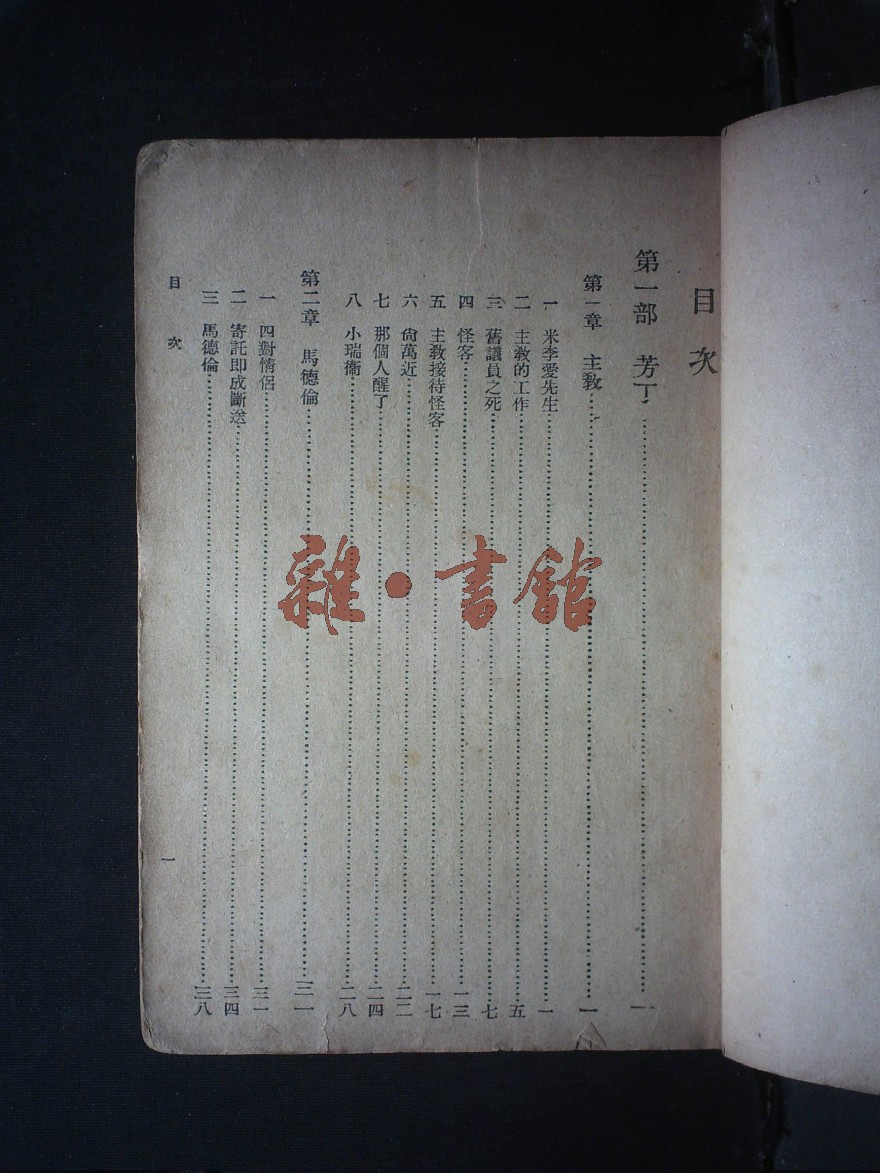 目次
第一部 芳丁 一
第一章 主教 一
一 米李愛先生 一
二 主教的工作 五
三 舊議員之死 七
四 怪客 一三
五 主教接待怪客 一七
六 尙萬近 二二
七 那個人醒了 二四
八 小瑞衞 二八
第二章 馬德倫 三一
一 四對情侶 三一
二 寄託即成斷送 三四
三 馬德倫 三八
目次
一
雜·書館